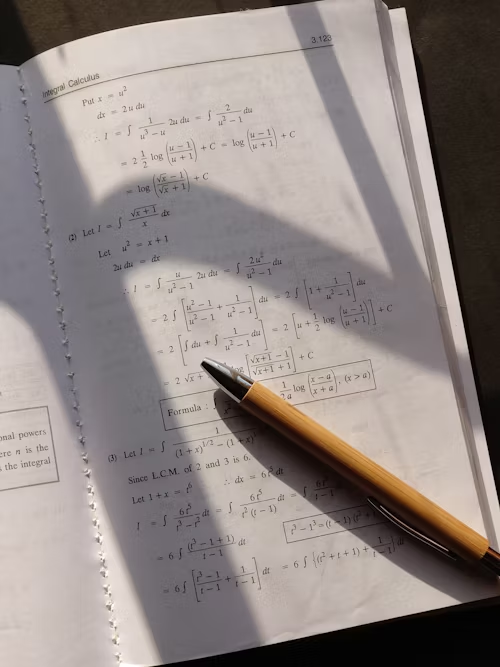 Integral Calculus 3.123
Put x = u²
dx = 2u du
∴ I = ∫ 1/(u³ − u) 2u du = ∫ 2/(u² − 1) du
= 2 1/2 log ((u − 1)/(u + 1)) + C = log ((u − 1)/(u + 1)) + C
= log ((√x − 1)/(√x + 1)) + C
(2) Let I = ∫ √(x + 1)/x dx
Let u² = x + 1
2u du = dx
∴ I = ∫ u/(u² − 1) 2u du = ∫ 2u²/(u² − 1) du
= 2 ∫ [(u² − 1)/(u² − 1) + 1/(u² − 1)] du = 2 ∫ [1 + 1/(u² − 1)] du
= 2 [∫ du + ∫ 1/(u² − 1) du] = 2 [u + 1/2 log ((u − 1)/(u + 1))] + C
= 2 √x + log [(√(x + 1) − 1)/(√(x + 1) + 1)] + C
Formula : 1/2a log ((x − a)/(x + a)) : (x > a)
(3) Let I = ∫ 1/((1 + x)^1/2 − (1 + x)
Since L.C.M. of 2 and 3 is 6,
Let 1 + x = t⁶ ∴ dx = 6t⁵ dt
I = ∫ 6t⁵/(t³ − t²) dt = ∫ 6t⁵/(t² (t − 1)) dt = ∫ 6t³/(t − 1)
t³ − 1³ = (t − 1) (t²
= 6 ∫ (t³ − 1 + 1)/(t − 1) dt
= 6 ∫ [(t³ − 1)/(t − 1) + 1/(t − 1)] dt = 6 ∫ {(t² + t + 1) + 1/(t − 1)} dt
onal powers
ere n is the
s the integral